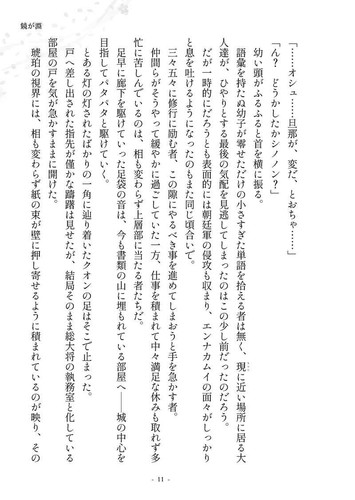 鏡が淵
「……オシュ……旦那が、変だ、とおちゃ……」
「ん？　どうかしたかシノノン？」
幼い頭がふるふると首を横に振る。
語彙を持たぬ幼子が零せただけの小さすぎた単語を拾える者は無く、現に近い場所に居る大
人達が、ひやりとする最後の気配を見逃してしまったのはこの少し前だったのだろう。
だが一時的にだろうとも表面的には朝廷軍の侵攻も収まり、エンナカムイの面々がしっかり
と息を吐けるようになったのもまた同じ頃合いで。
三々五々に修行に励む者、この隙にやるべき事を進めてしまおうと手を急かす者。
仲間らがそうやって緩やかに過ごしていた一方、仕事を積まれて中々満足な休みも取れず多
忙に苦しんでいるのは、相も変わらず上層部に当たる者たちだ。
足早に廊下を駆けていった足袋の音は、今も書類の山に埋もれている部屋へ――城の中心を
目指してパタパタと駆けていく。
とある灯の灯されたばかりの一角に辿り着いたクオンの足はそこで止まった。
戸へ差し出された指先が僅かな躊躇は見せたが、結局そのまま総大将の執務室と化している
部屋の戸を気が急かすままに開けた。
琥珀の視界には、相も変わらず紙の束が壁に押し寄せるように積まれているのが映り、その
- 11 -